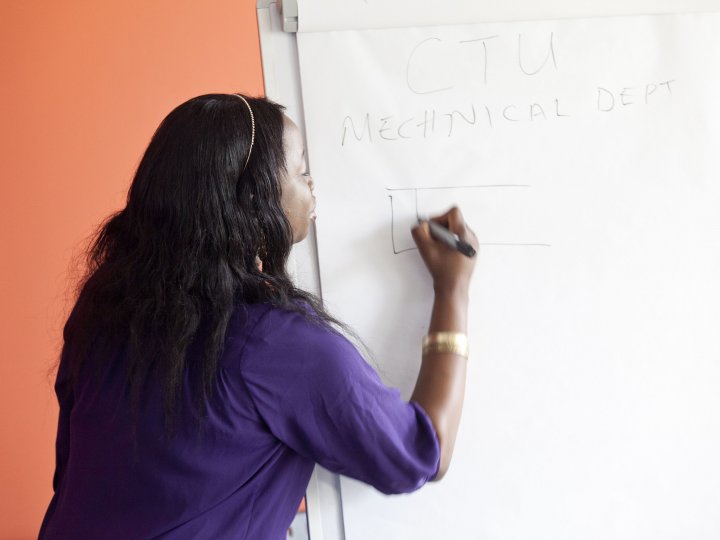 CTU
MECHNICAL DEPT